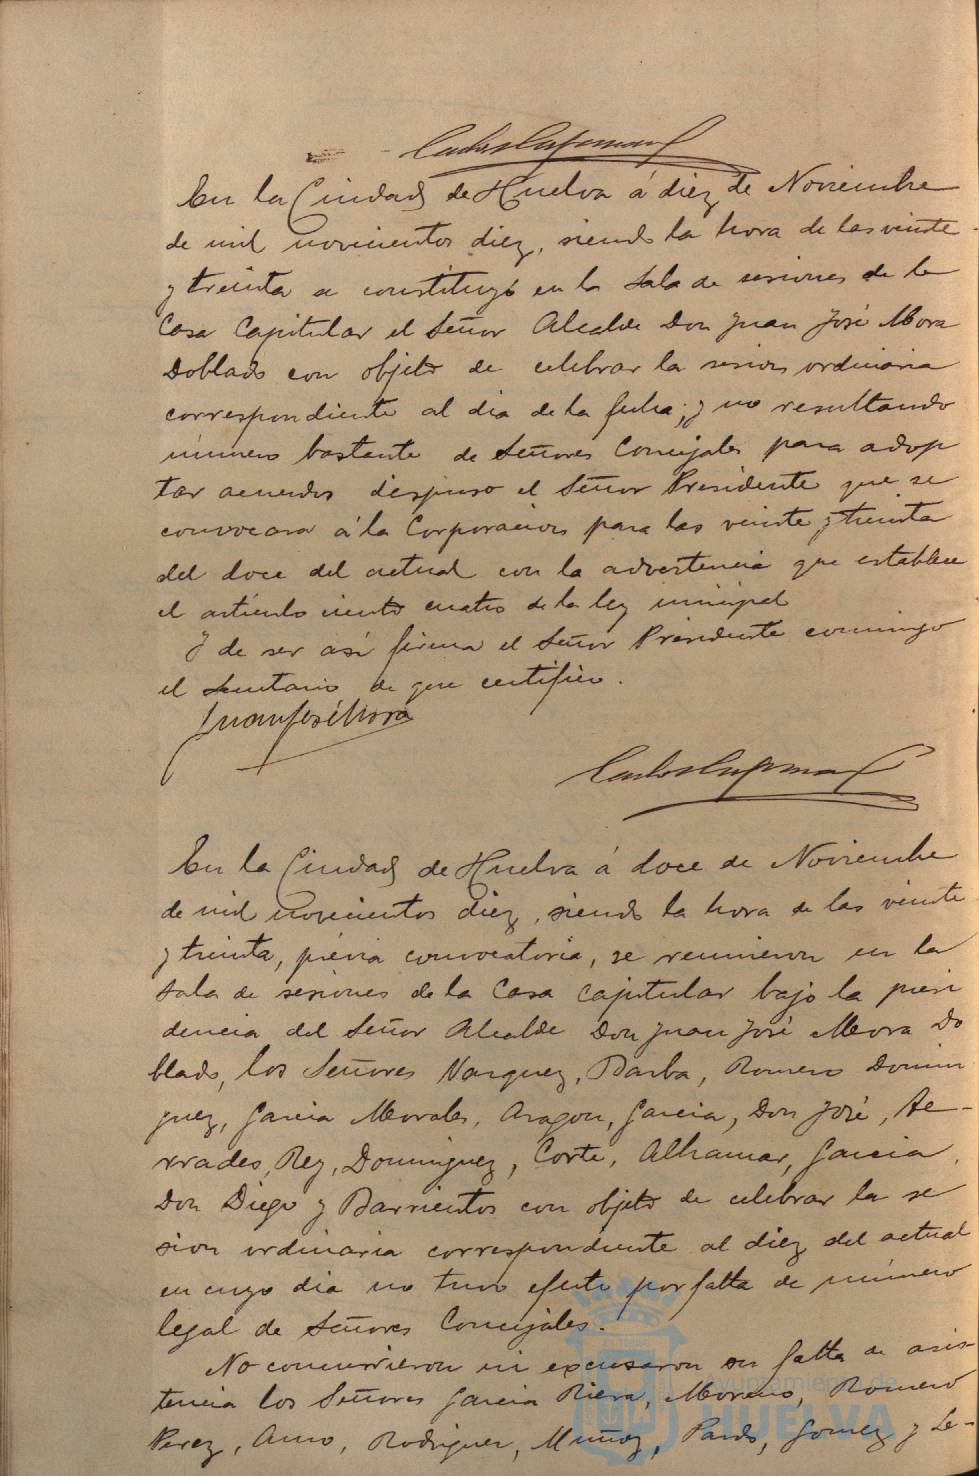 En la Ciudad de Huelva á diez de Noviembre
de mil novecientos diez, siendo la hora de las veinte
y treinta se constituyó en la Sala de sesiones de la
Casa Capitular el Señor Alcalde Don Juan José Mora
Doblado con objeto de celebrar la sesion ordinaria
correspondiente al dia de la fecha; y no resultando
número bastante de Señores Concejales para adop
tar acuerdos dispuso el Señor Presidente que se
convocara á la Corporacion para las veinte y treinta
del doce del actual con la advertencia que establece
el artículo ciento cuatro de la ley municipal
Y de ser así firma el Señor Presidente conmigo
el Secretario de que certifico.
Juan José Mora
En la Ciudad de Huelva á doce de Noviembre
de mil novecientos diez, siendo la hora de las veinte
y treinta, prévia convocatoria, se reunieron en la
Sala de sesiones de la Casa Capitular bajo la presi
dencia del Señor Alcalde Don Juan José Mora Do
blado, los Señores Vazquez, Barba, Romero Domin
guez, Garcia Morales, Aragon, Garcia, Don José, Te-
rrades, Rey, Dominguez, Corte, Alhamar, Garcia,
Don Diego y Barrientos con objeto de celebrar la se
sion ordinaria correspondiente al diez del actual
en cuyo dia no tuvo efecto por falta de número
legal de Señores Concejales.
No concurrieron ni excusaron su falta de asis-
tencia los Señores Garcia Riera, Moreno, Romero
Perez, Amo, Rodriguez, Muñoz, Pardo, Gomez y Le-
Ayuntamiento de
HUELVA